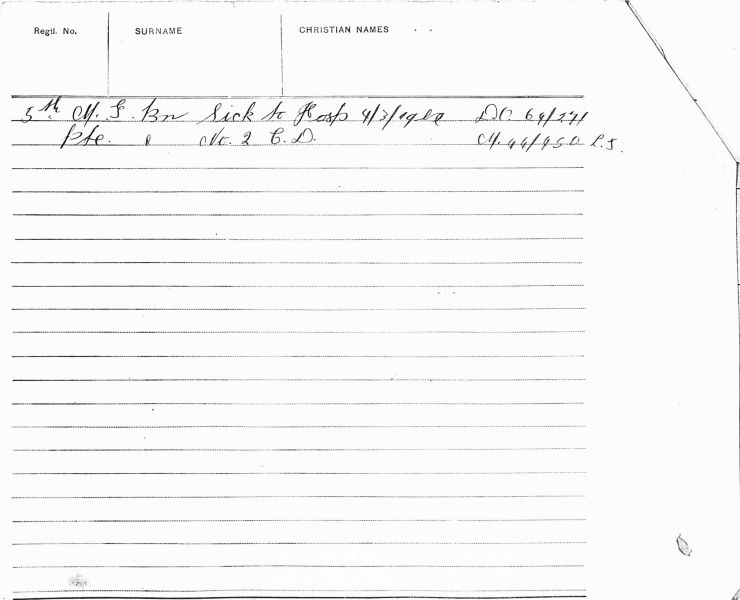 Regtl. No. SURNAME CHRISTIAN NAMES
5th M. G. Bn Sick to Hosp 4/3/19 D.O. 69/271
Pte. " No. 2 C. D. M.